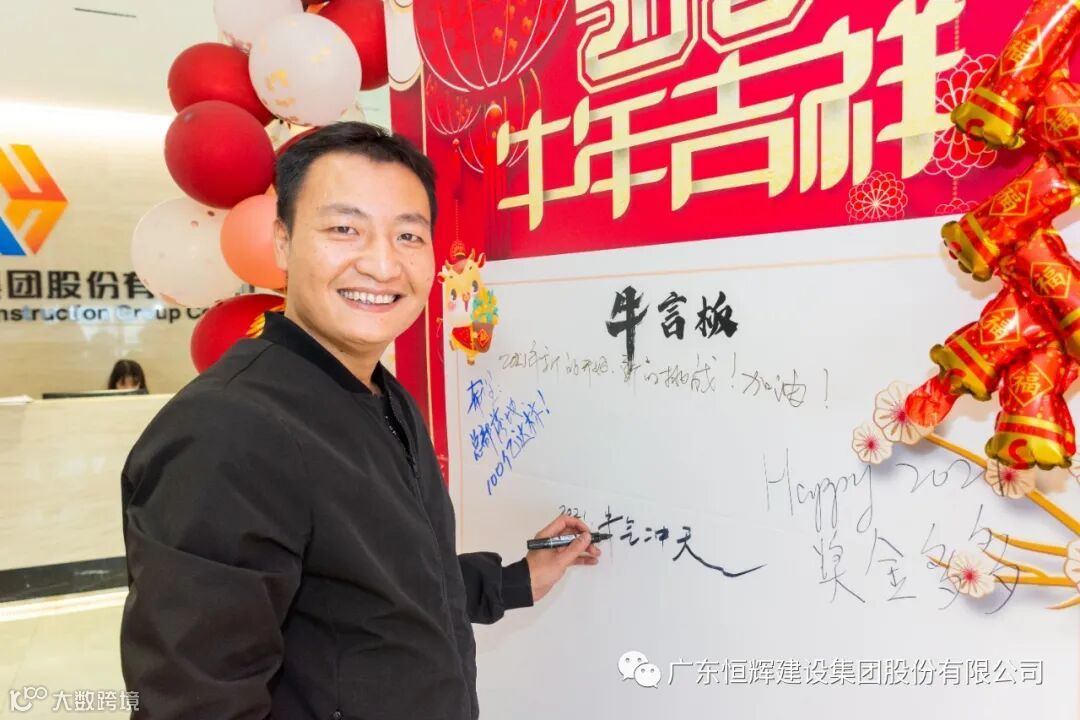 2021
牛年吉祥
集团股份有
nstruction Group Co
牛言板
2021年新的开始,新的挑战!加油!
希望:
总部落成
100亿达标!
Happy 2021
奖金多多
2021 牛气冲天
福
福
福
福
福
福
广东恒辉建设集团股份有限公司
大数跨境